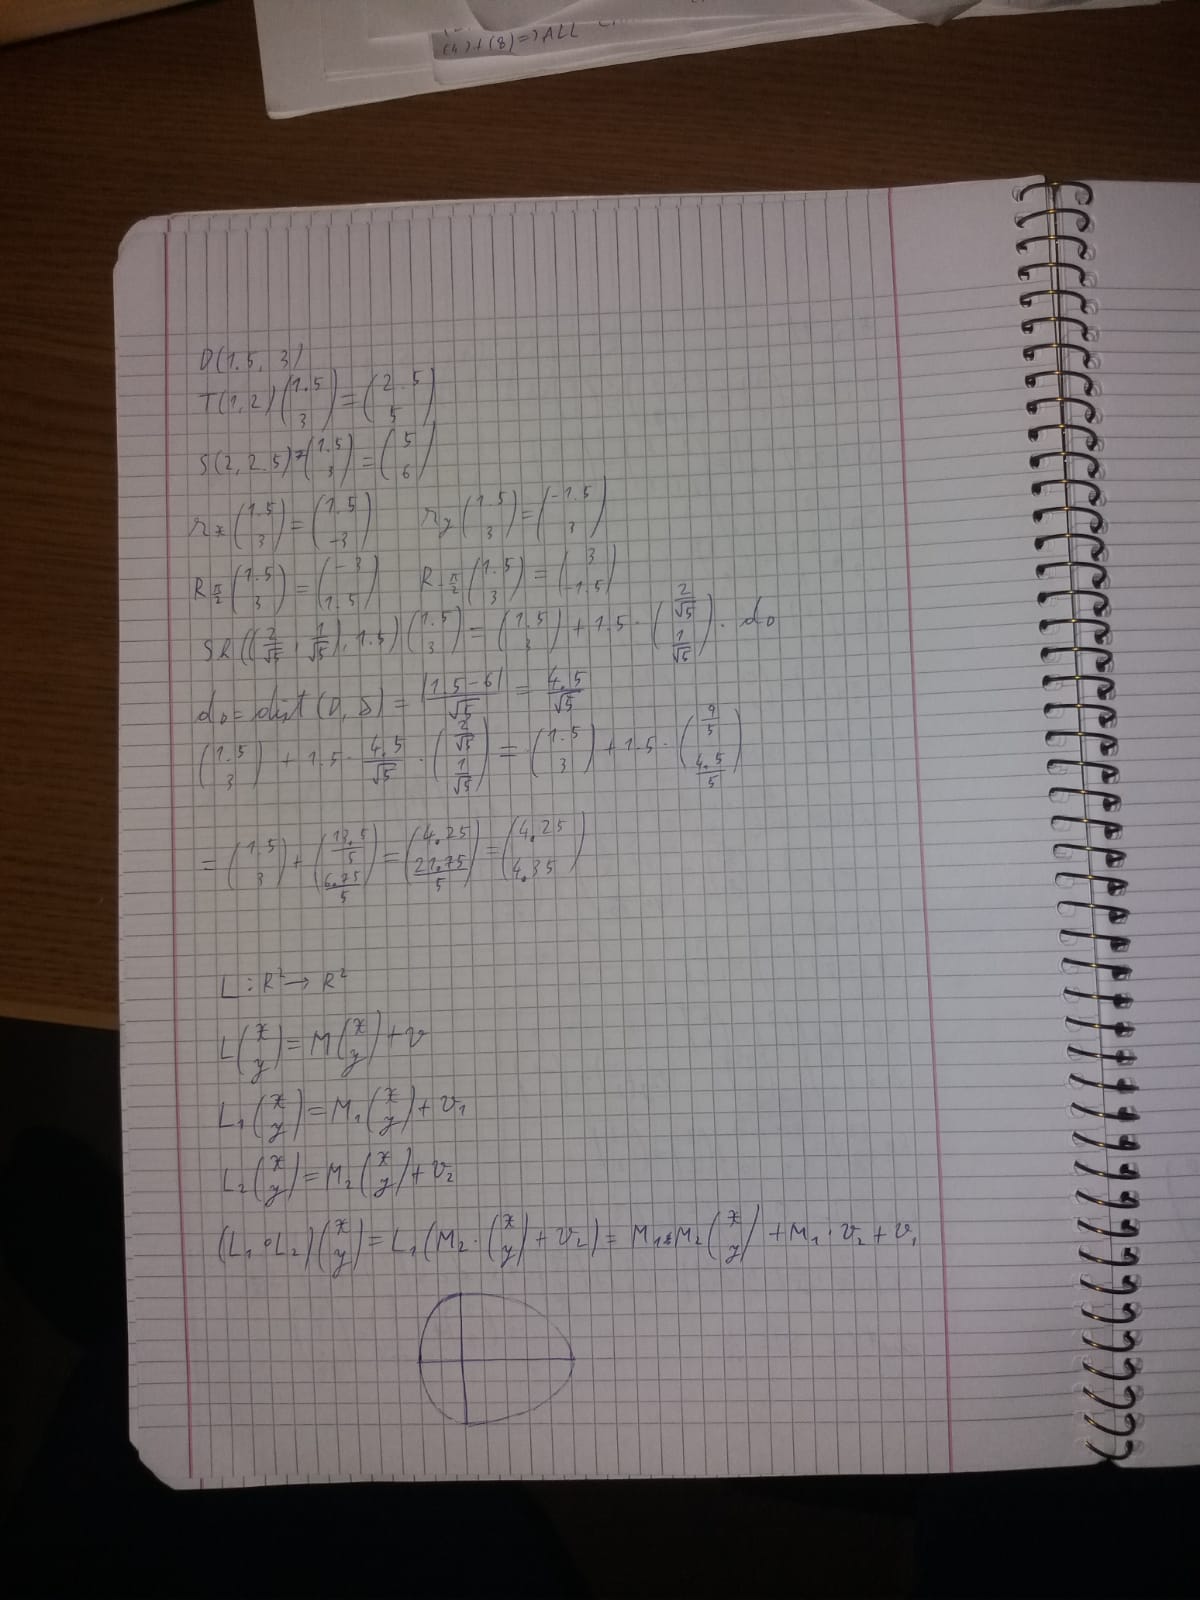 (4)+(8)=)ALL
D(1.5, 3)
T(1,2)(1.5 3)=(2.5 5)
S(2, 2.5)*(1.5 3)=(5 6)
rx(1.5 3)=(1.5 -3) ry(1.5 3)=(-1.5 3)
Rπ/2(1.5 3)=(-3 1.5) R-π/2(1.5 3)=(3 -1.5)
Sh((2/√5, 1/√5), 1.5)(1.5 3)=(1.5 3)+1.5·(2/√5 1/√5)·d₀
d₀=dist(D, S)=|1.5-6|/√5=4.5/√5
(1.5 3)+1.5·4.5/√5·(2/√5 1/√5)=(1.5 3)+1.5·(9/5 4.5/5)
=(1.5 3)+(13.5/5 6.75/5)=(4.25 21.75/5)=(4.25 4.35)
L:R²→R²
L(x y)=M(x y)+v
L₁(x y)=M₁(x y)+v₁
L₂(x y)=M₂(x y)+v₂
(L₁∘L₂)(x y)=L₁(M₂·(x y)+v₂)=M₁*M₂(x y)+M₁·v₂+v₁